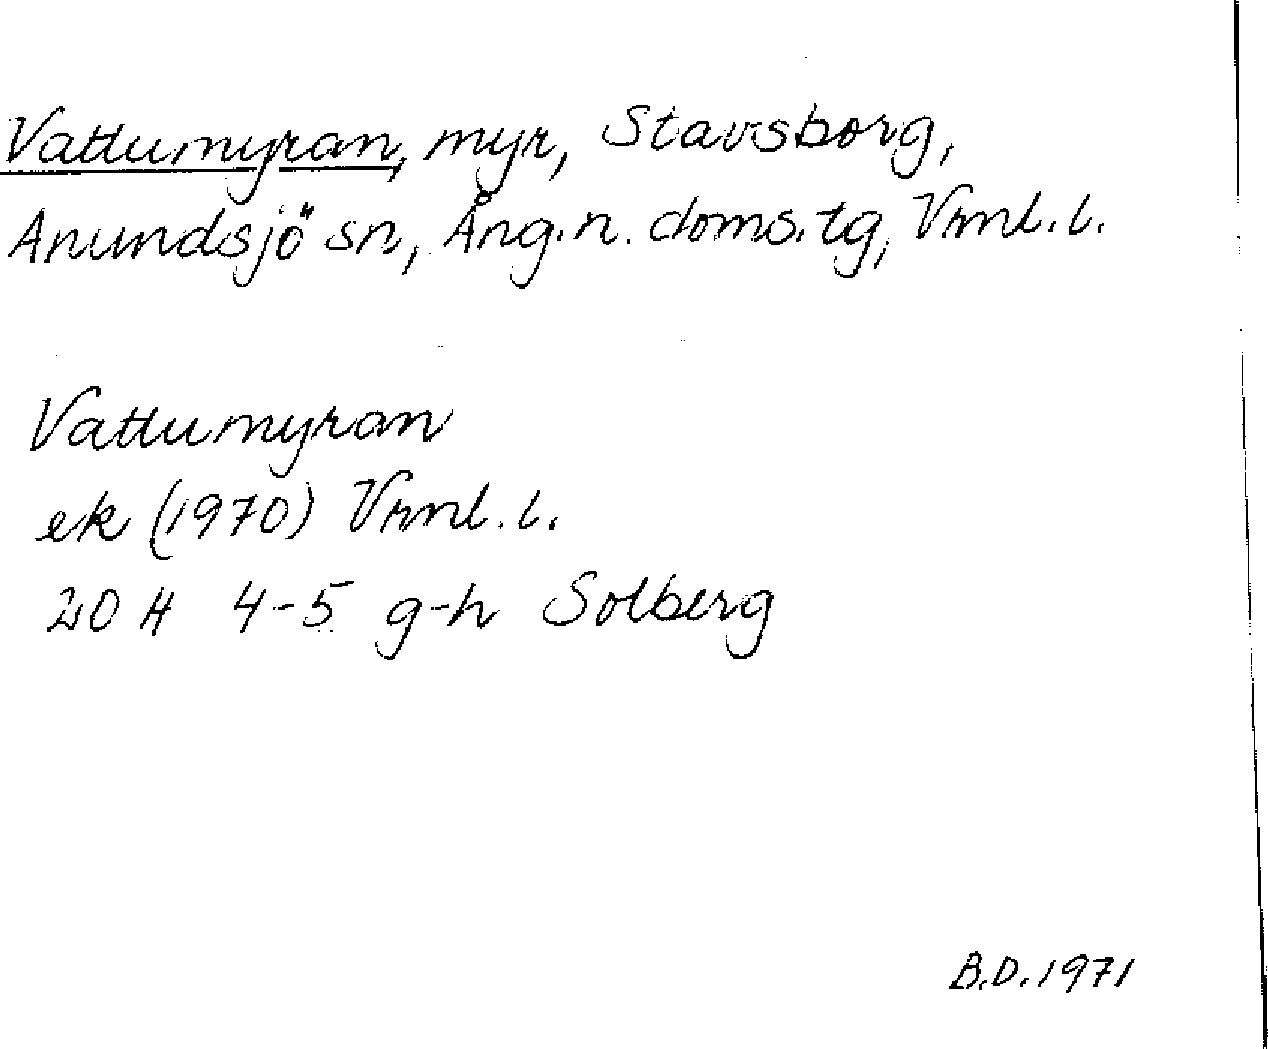 Vattumyran, myr, Stavsborg,
Anundsjö sn, Ång.n. doms.tg, Vrnl.l.
Vattumyran
ek (1970) Vrnl.l.
20 H 4-5 g-h Solberg
B.D. 1971